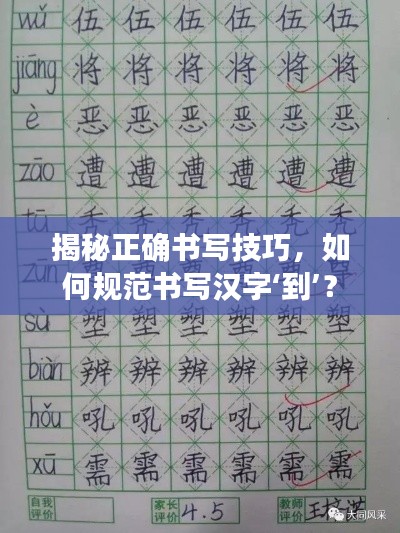 wǔ 伍 伍 伍 伍 伍 伍
jiāng 将 将 将 将 将 将
è 恶 恶 恶 恶 恶 恶
zāo 遭 遭 遭 遭 遭 遭
tū 秃 秃 秃 秃 秃 秃
揭秘正确书写技巧，如
何规范书写汉字‘到’？
sù 塑 塑 塑 塑 塑 塑
biàn 辨 辨 辨 辨 辨 辨
hǒu 吼 吼 吼 吼 吼 吼
xū 需 需 需 需 需 需
自我 家长 教师
评价 评价 4.5 评价
大同风采